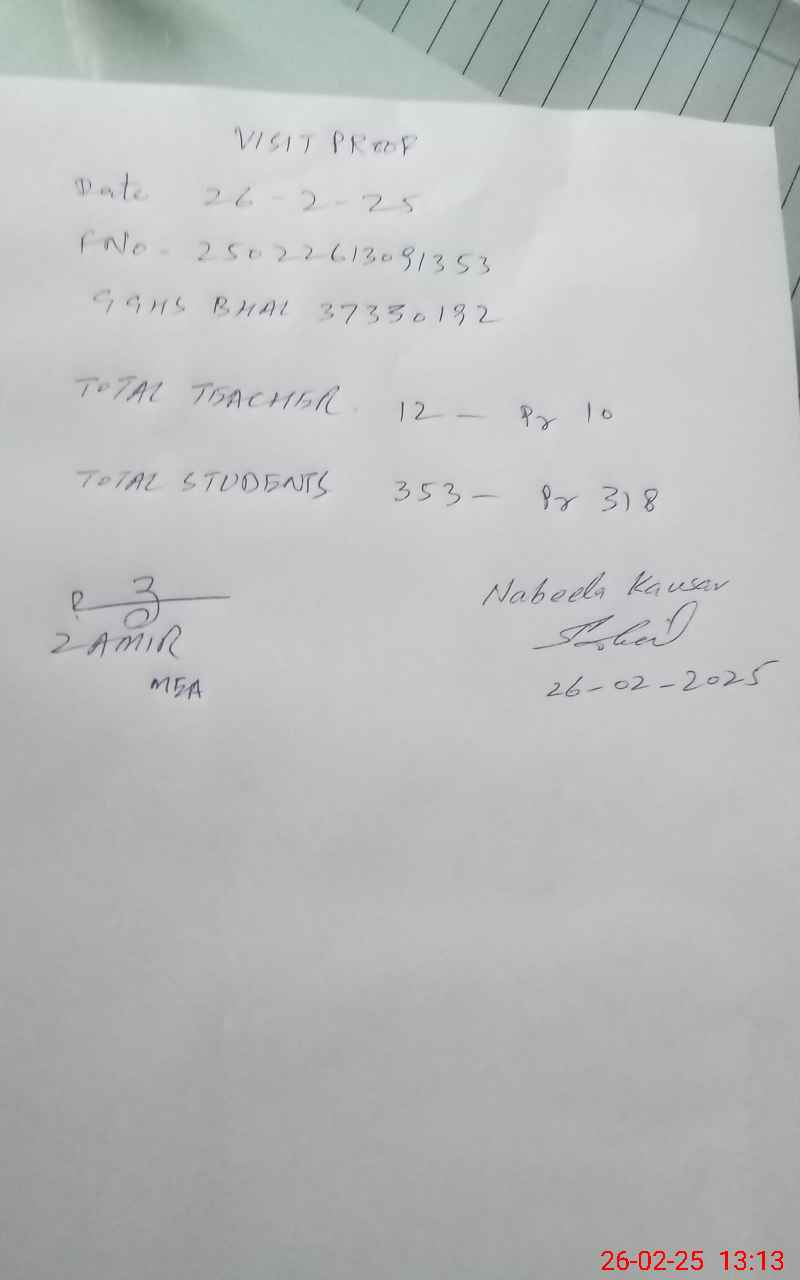 VISIT PROOF
Date 26-2-25
FNo. 25022613091353
GGHS BHAL 37330192
TOTAL TEACHER. 12 - Pr 10
TOTAL STUDENTS 353 - Pr 318
ZAMIR
MEA
Nabeela Kausar
26-02-2025
26-02-25 13:13